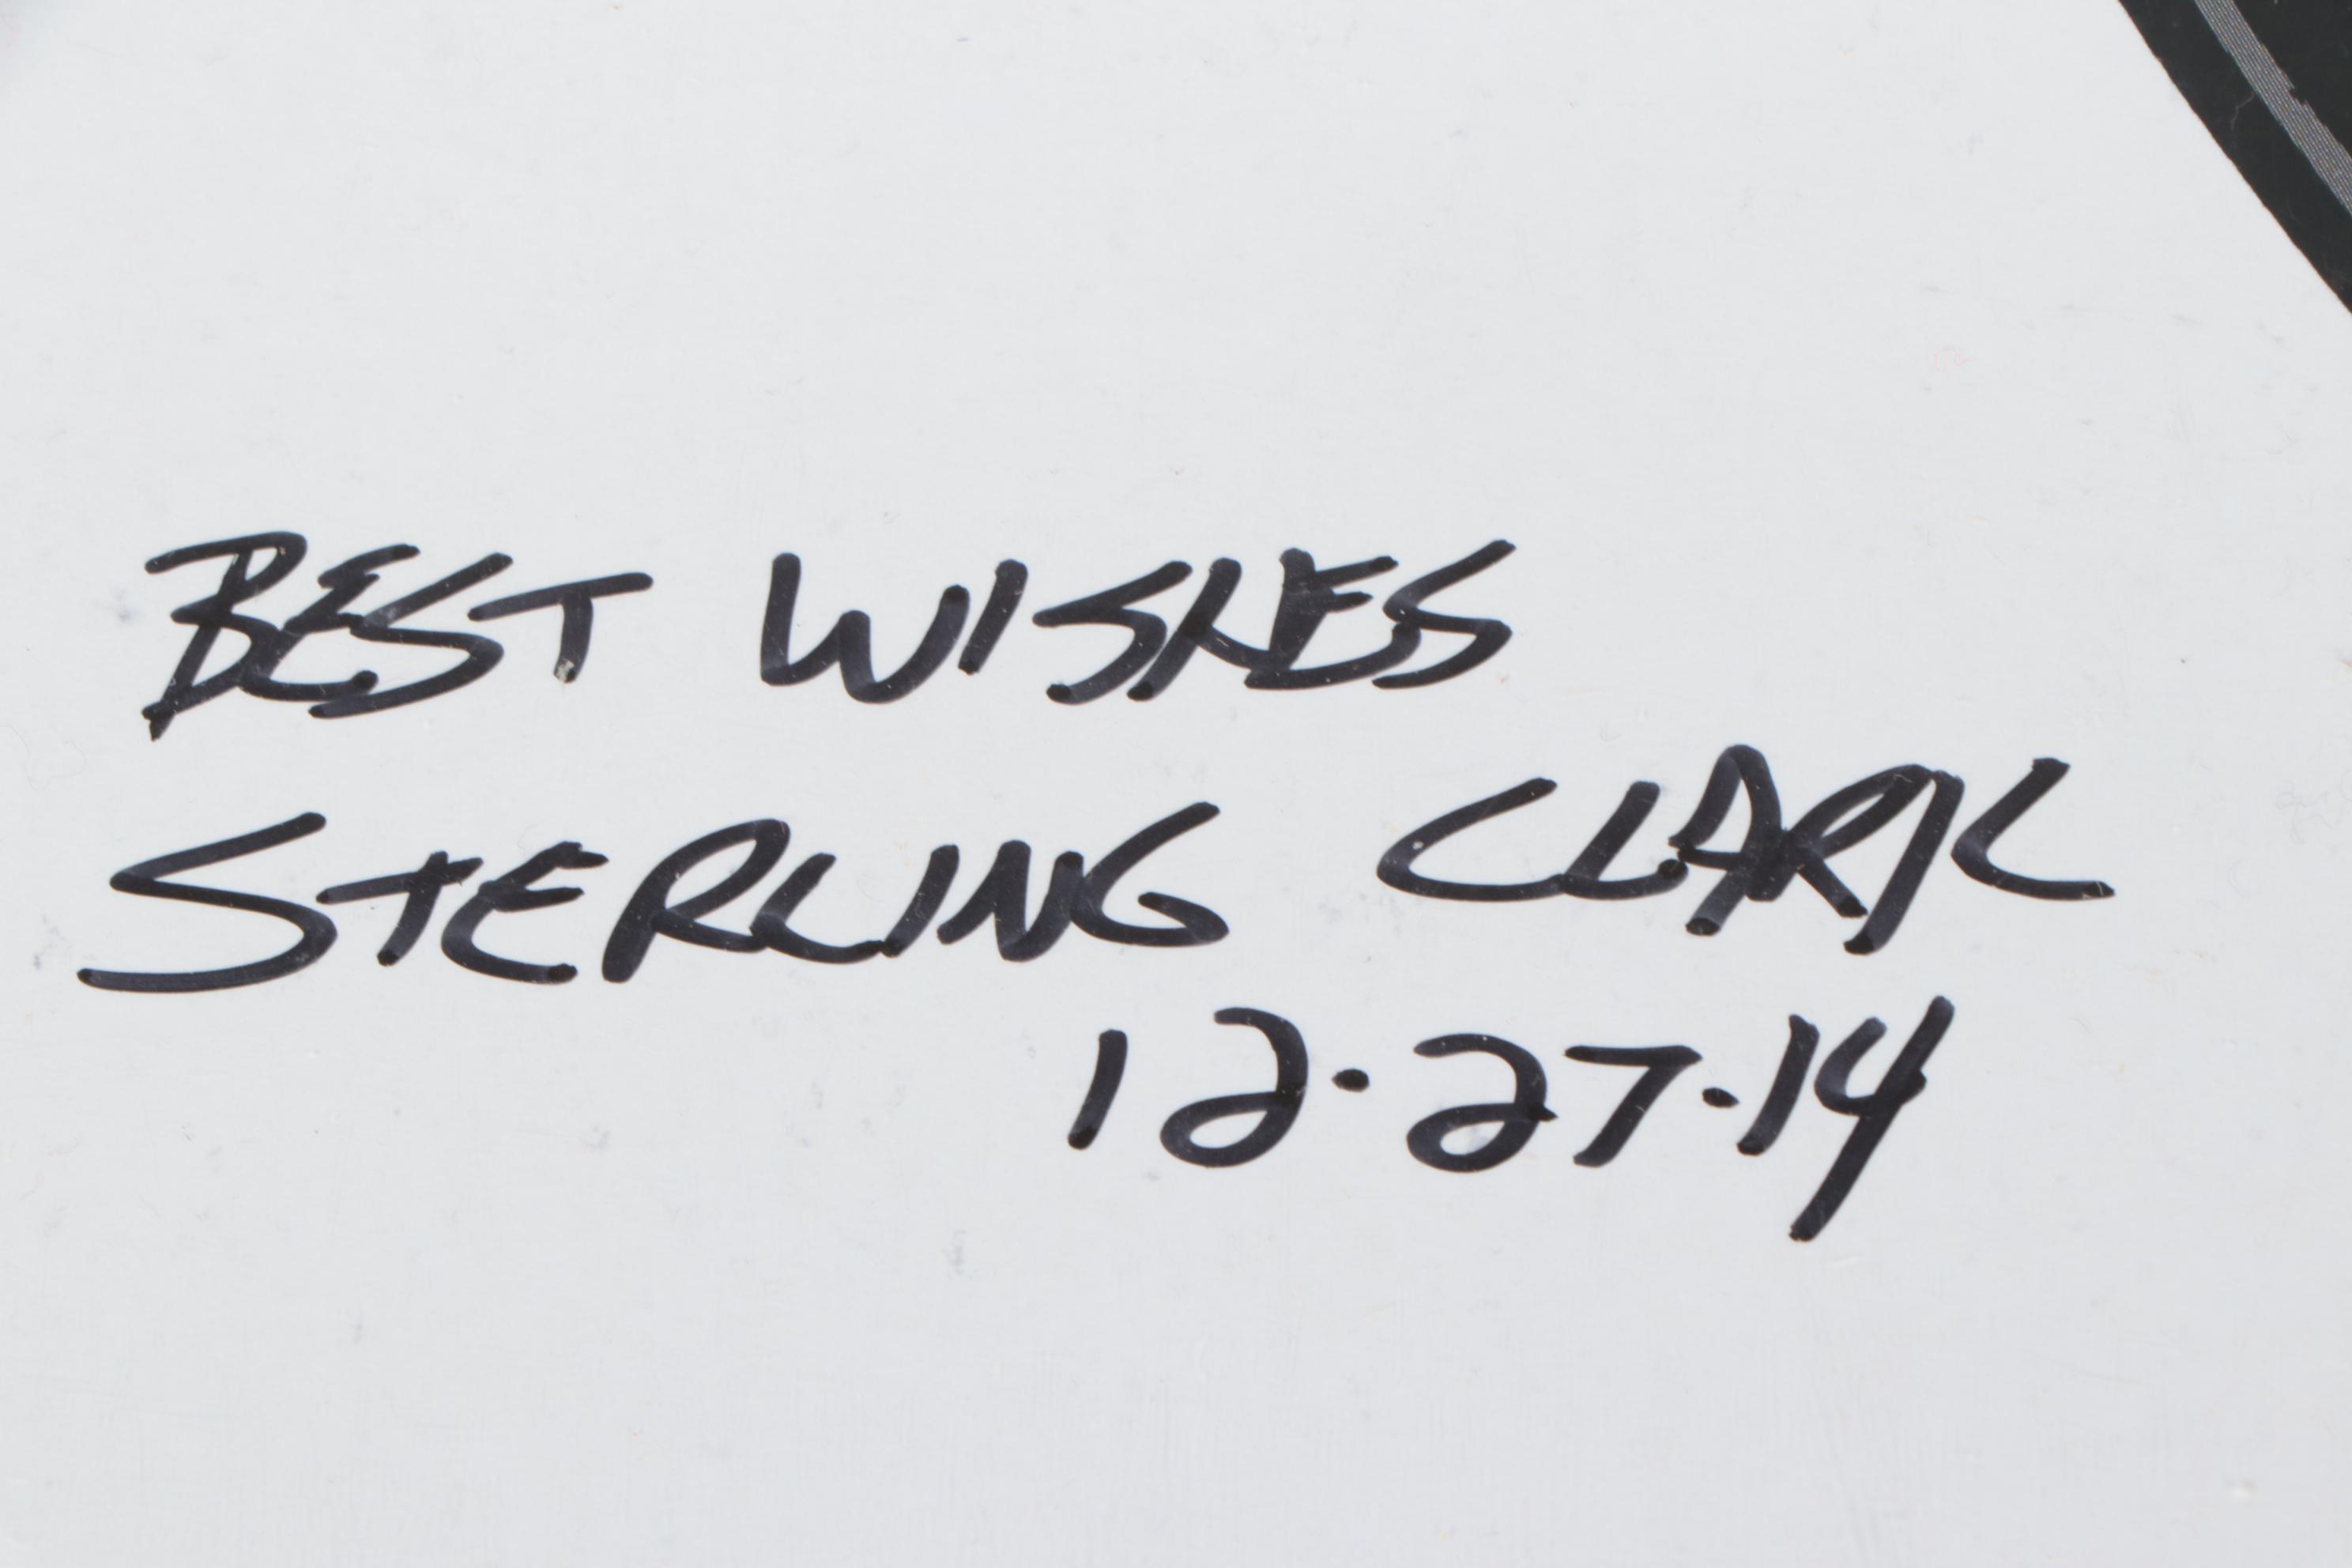 BEST WISHES
STERLING CLARK
12.27.14